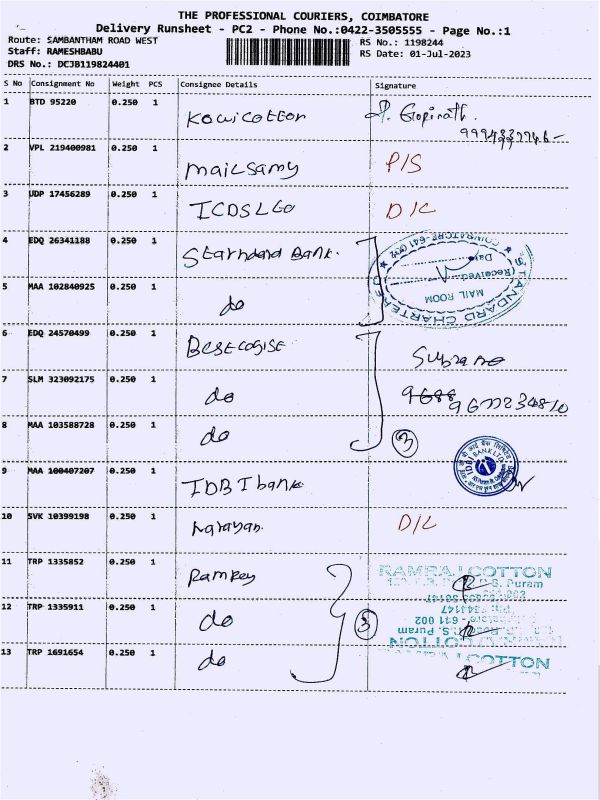 THE PROFESSIONAL COURIERS, COIMBATORE
Delivery Runsheet - PC2 - Phone No.:0422-3505555 - Page No.:1
Route: SAMBANTHAM ROAD WEST
RS No.: 1198244
Staff: RAMESHBABU
RS Date: 01-Jul-2023
DRS No.: DCJB119824401
S No Consignment No Weight PCS Consignee Details Signature
1 BTD 95220 0.250 1 Kowicotton
2 VPL 219400981 0.250 1 mailsamy P/S
3 UDP 17456289 0.250 1 ICDSLGO D/C
4 EDQ 26341188 0.250 1 Starndard Bank.
STANDARD CHARTERED
COIMBATORE-641 002
Date
(Received
MAIL ROOM
5 MAA 102840925 0.250 1 do
6 EDQ 24570499 0.250 1
7 SLM 323092175 0.250 1 do
8 MAA 103588728 0.250 1 do 3
9 MAA 100407207 0.250 1 IDBI bank
IDBI BANK LTD.
10 SVK 10399198 0.250 1 Narayan. D/L
11 TRP 1335852 0.250 1 Ramrey
RAMRAJ COTTON
R.S. Puram
12 TRP 1335911 0.250 1 do 3
641 002
R.S. Puram
13 TRP 1691654 0.250 1 do
COTTON